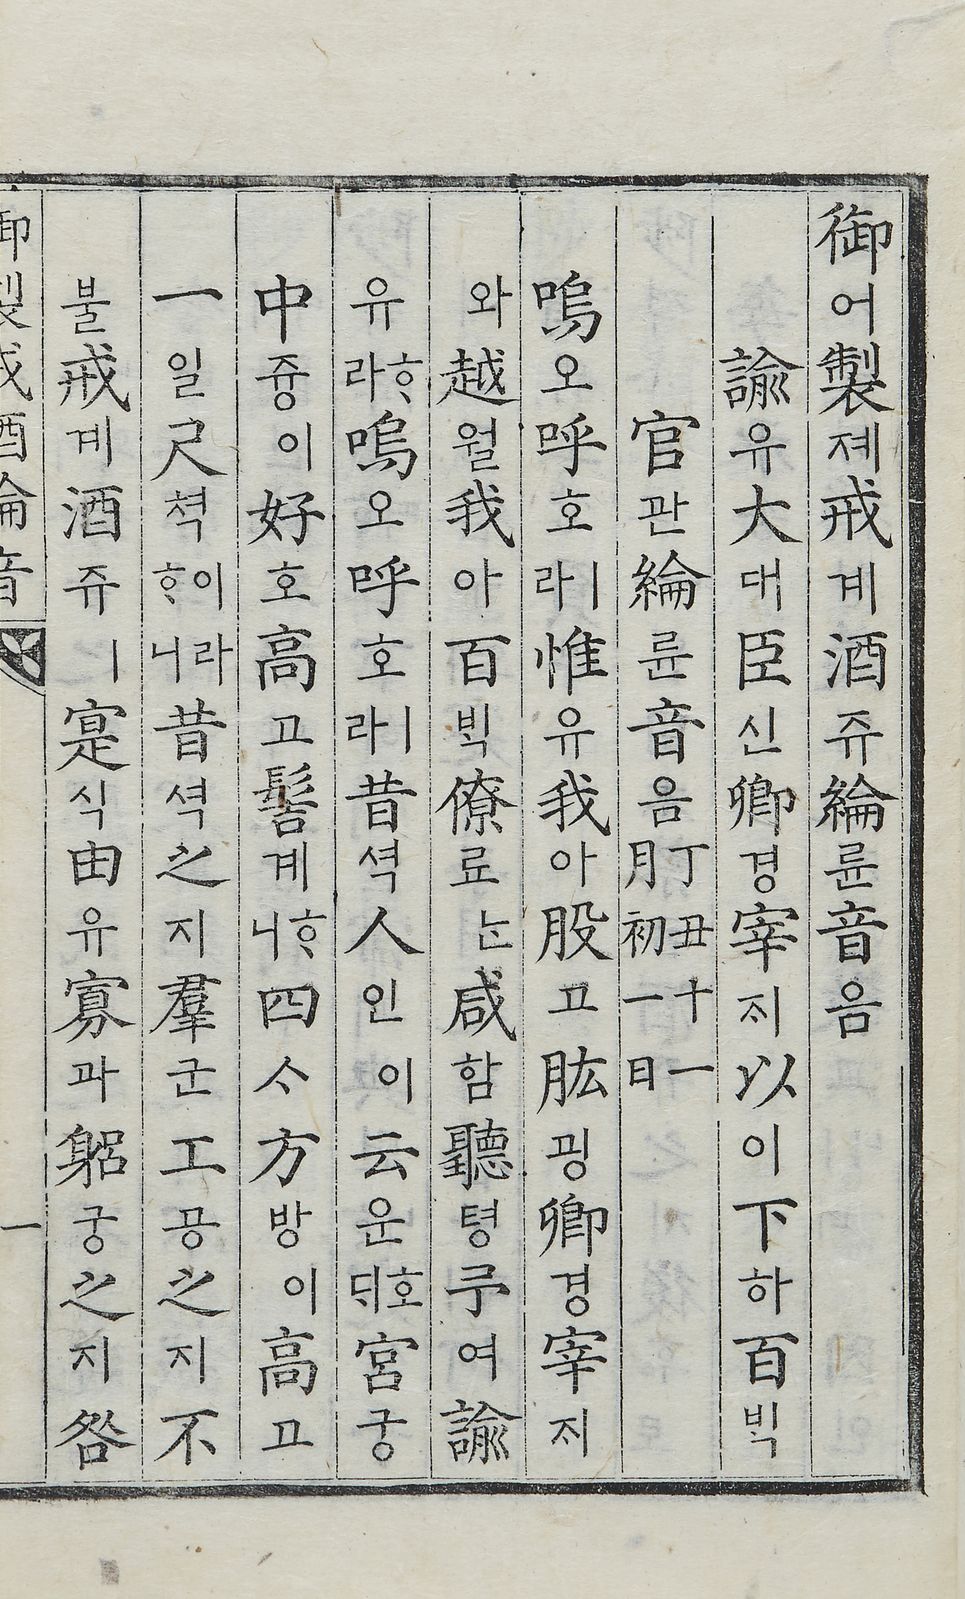 御어製졔戒계酒쥬綸륜音음
諭유大대臣신卿경宰ᄌᆡ以이下하百ᄇᆡᆨ
官관綸륜音음丁丑十一月初一日
嗚오呼호ㅣ라惟유我아股고肱굉卿경宰ᄌᆡ
와越월我아百ᄇᆡᆨ僚료ᄂᆞᆫ咸함聽텽予여諭
유ᄒᆞ라嗚오呼호ㅣ라昔셕人인이云운호ᄃᆡ宮궁
中즁이好호高고髻계ᄒᆞ니四ᄉᆞ方방이高고
一일尺쳑이라ᄒᆞ니昔셕之지羣군工공之지不
불戒계酒쥬ㅣ寔식由유寡과躬궁之지咎
御製戒酒綸音
一